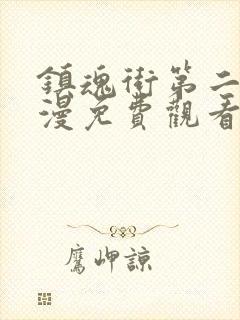 鎮魂街第二
漫免費觀看
鷹岬諒